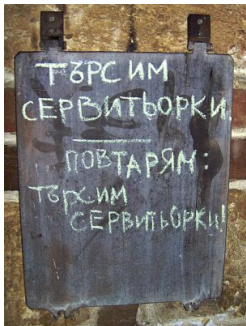 ТЪРСИМ
СЕРВИТЬОРКИ.
ПОВТАРЯМ:
ТЪРСИМ
СЕРВИТЬОРКИ!